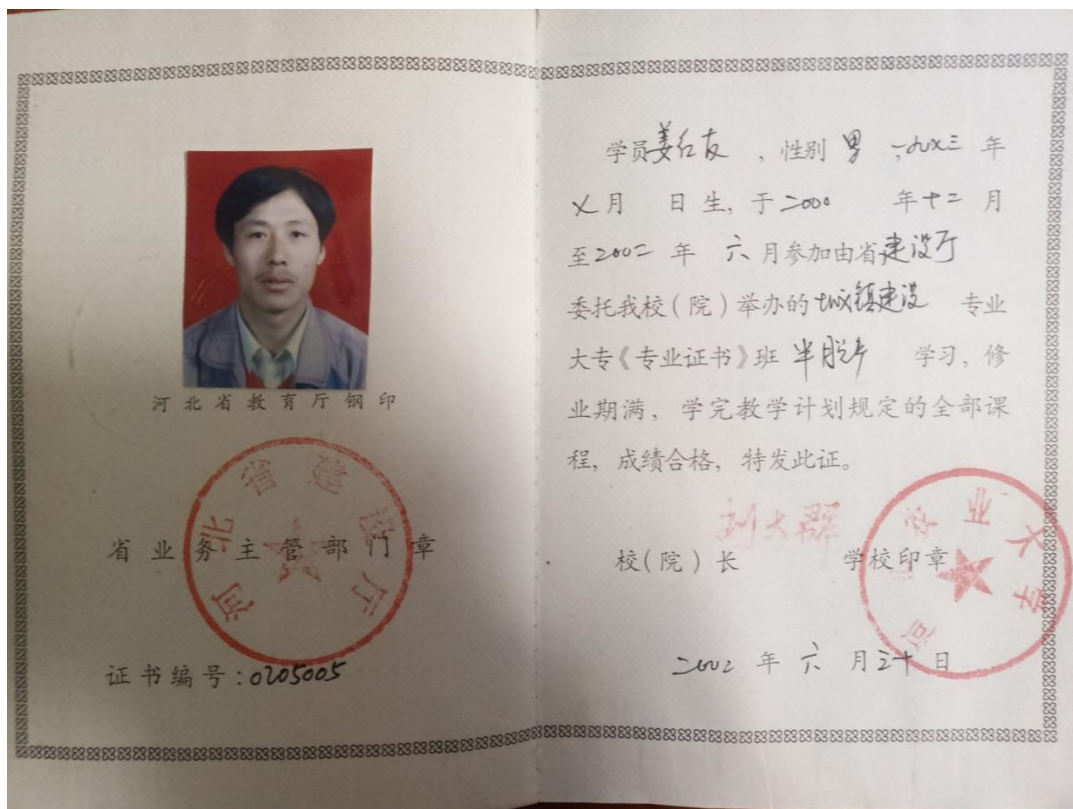 河北省教育厅钢印
河北省建设厅
省业务主管部门章
证书编号:0205005
学员姜红友，性别 男 ，一九六三 年
X月 日生，于二000 年十二月
至2002年 六月参加由省建设厅
委托我校（院）举办的城镇建设 专业
大专《专业证书》班 半脱产 学习，修
业期满，学完教学计划规定的全部课
程，成绩合格，特发此证。
刘大群
校（院）长 学校印章
业大学
二00二 年 六 月三十日